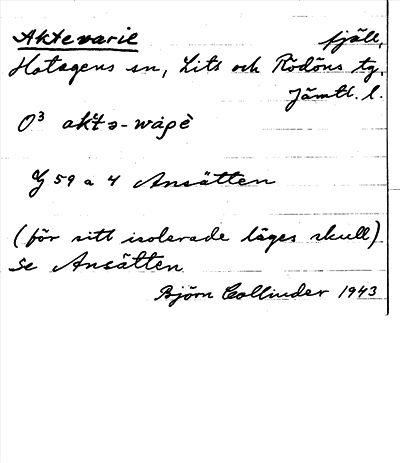 Aktevarie fjäll,
Hotagens sn, Lits och Rödöns tg,
Jämtl. l.
O³ aktə-wàpè
G 59 a 4 Ansätten
(för sitt isolerade läges skull)
Se Ansätten
Björn Collinder 1943